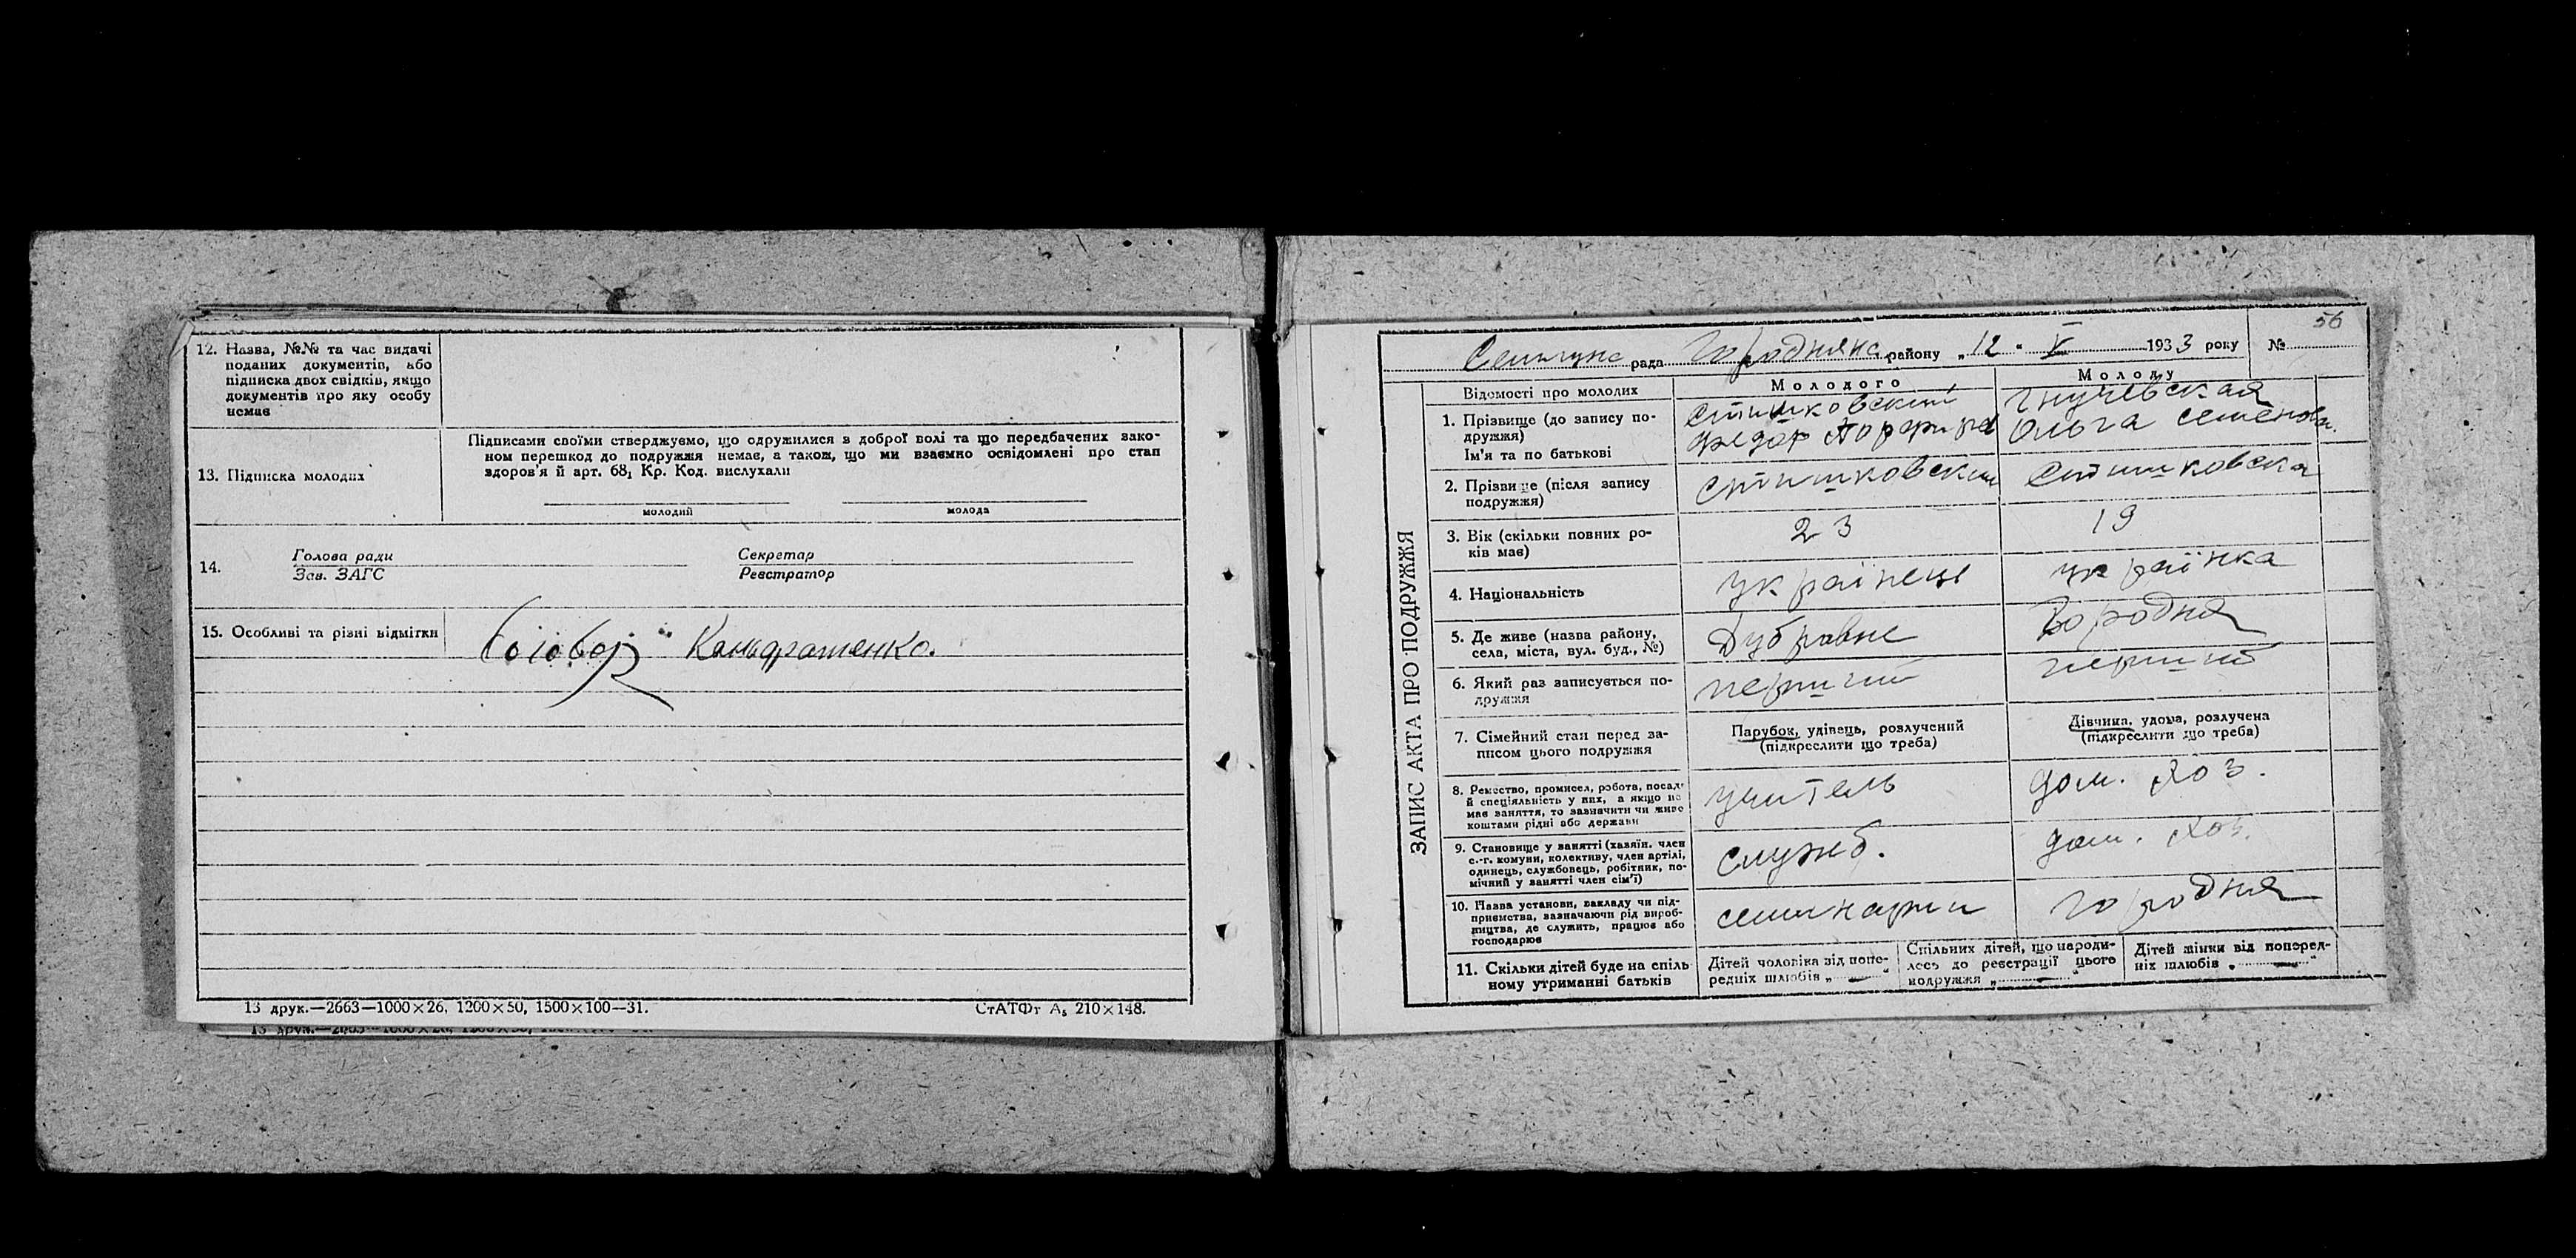 12. Назва, №№ та час видачі
поданих документів, або
підписка двох свідків, якщо
документів про яку особу
немає
13. Підписка молодих
Підписами своїми стверджуємо, що одружилися в доброї волі та що передбачених зако-
ном перешкод до подружжя немає, а також, що ми взаємно освідомлені про стан
здоров'я й арт. 68₁ Кр. Код. вислухали
молодий
молода
14.
Голова ради
Зав. ЗАГС
Секретар
Реєстратор
15. Особливі та різні відмітки
13 друк.—2663—1000×26, 1200×50, 1500×100—31.
СтАТФт А₅ 210×148.
ЗАПИС АКТА ПРО ПОДРУЖЖЯ
56
рада Городняна району „12 " V 1933 року №
Відомості про молодих
Молодого
Молоду
1. Прізвище (до запису по-
дружжя)
Ім'я та по батькові
Стишковский
Федор Порфири
Гнучевская
Ольга Семенова.
2. Прізвище (після запису
подружжя)
Стишковский
Стишковска
3. Вік (скільки повних ро-
ків має)
23
19
4. Національність
українець
українка
5. Де живе (назва району,
села, міста, вул. буд., №)
Дубравне
Городня
6. Який раз записується по-
дружжя
перший
перший
7. Сімейний стан перед за-
писом цього подружжя
Парубок, удівець, розлучений
(підкреслити що треба)
Дівчина, удова, розлучена
(підкреслити що треба)
8. Ремество, промисел, робота, посад
й спеціяльність у них, а якщо не
має заняття, то зазначити чи живе
коштами рідні або держави
учитель
дом. хоз.
9. Становище у занятті (хазяїн. член
с.-г. комуни, колективу, член артілі,
одинець, службовець, робітник, по-
мічний у занятті член сім'ї)
служб.
дом. хоз.
10. Назва установи, закладу чи під-
приємства, зазначаючи рід вироб-
ництва, де служить, працює або
господарює
семинарии
Городня
11. Скільки дітей буде на спіль
ному утриманні батьків
Дітей чоловіка від попе-
редніх шлюбів „ — "
Спільних дітей, що народи-
лось до реєстрації цього
подружжя „ — "
Дітей жінки від поперед-
ніх шлюбів „ — "